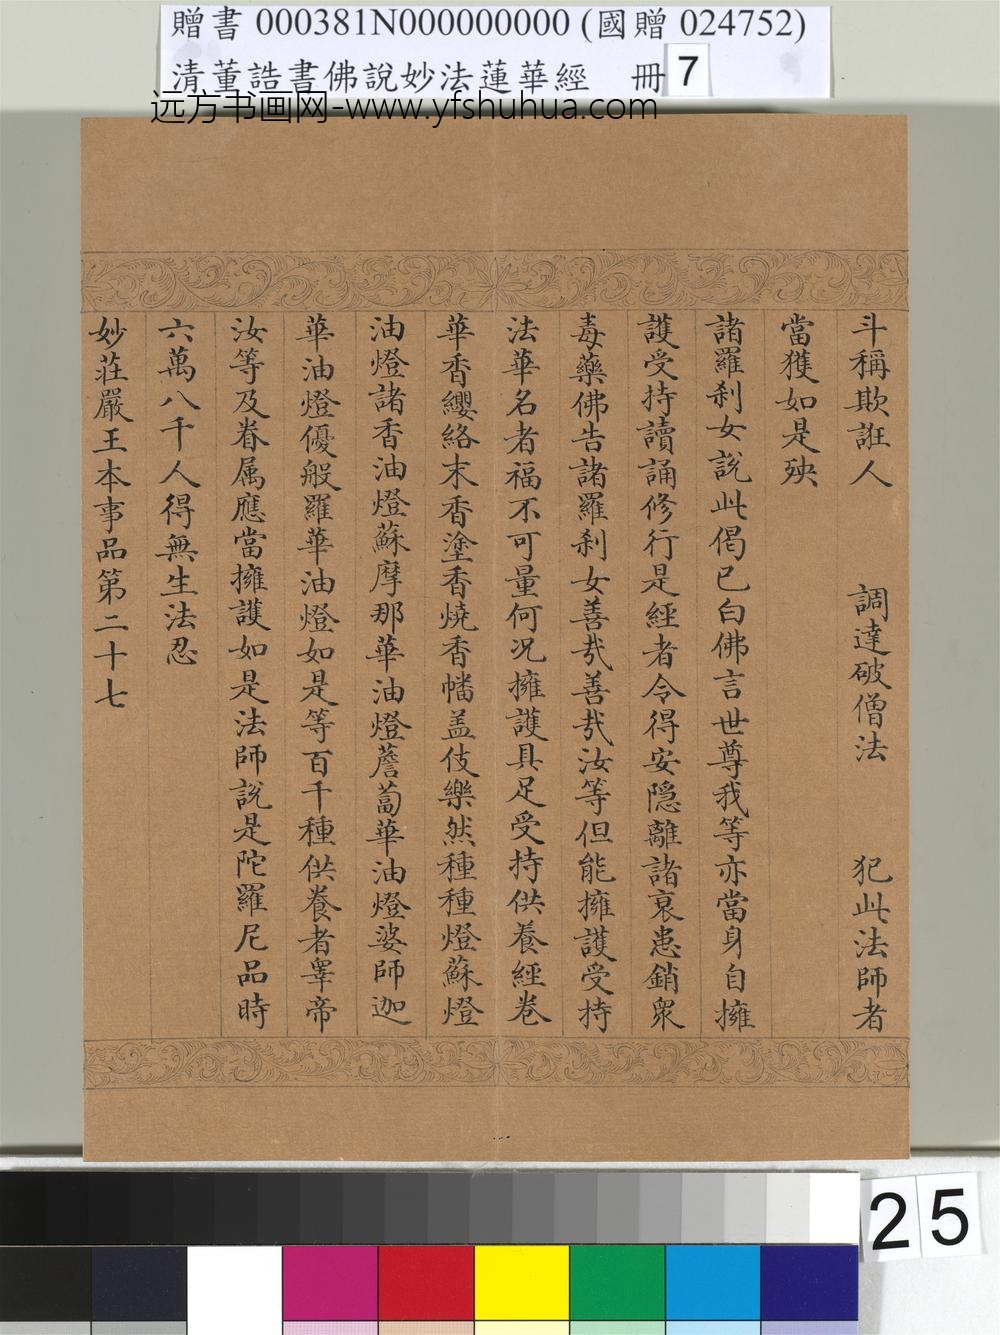 贈書 000381N000000000 (國贈 024752)
清董誥書佛說妙法蓮華經 冊 7
远方书画网-www.yfshuhua.com
斗稱欺誑人 調達破僧法 犯此法師者
當獲如是殃
諸羅刹女說此偈已白佛言世尊我等亦當身自擁
護受持讀誦修行是經者令得安隱離諸衰患銷眾
毒藥佛告諸羅刹女善哉善哉汝等但能擁護受持
法華名者福不可量何況擁護具足受持供養經卷
華香纓絡末香塗香燒香幡盖伎樂然種種燈蘇燈
油燈諸香油燈蘇摩那華油燈薝蔔華油燈婆師迦
華油燈優般羅華油燈如是等百千種供養者睪帝
汝等及眷属應當擁護如是法師說是陀羅尼品時
六萬八千人得無生法忍
妙莊嚴王本事品第二十七
25